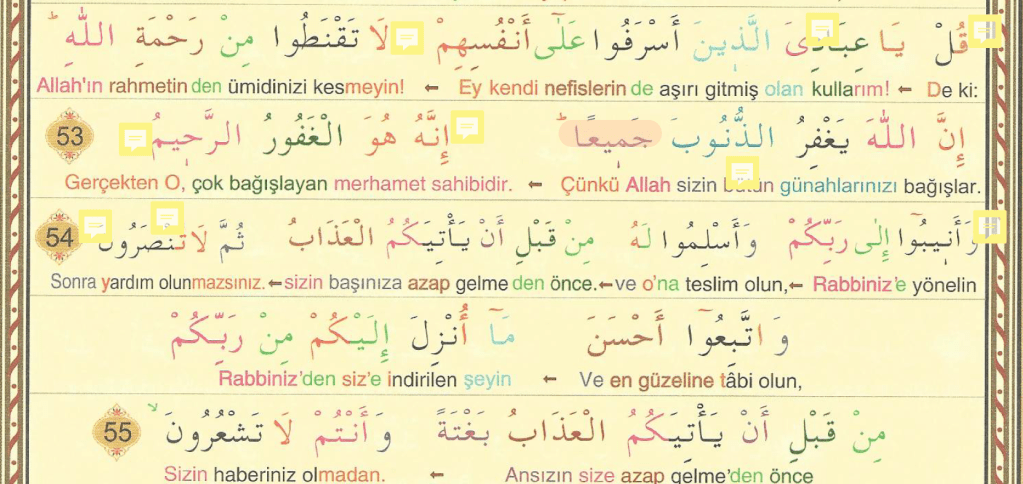 قُلْ يَا عِبَادِيَ الَّذِينَ أَسْرَفُوا عَلَىٰٓ أَنْفُسِهِمْ لَا تَقْنَطُوا مِنْ رَحْمَةِ اللّٰهِ ۜ
De ki: ← Ey kendi nefislerin de aşırı gitmiş olan kullarım! ← Allah'ın rahmetin den ümidinizi kesmeyin!
إِنَّ اللّٰهَ يَغْفِرُ الذُّنُوبَ جَمِيعًا ۜ إِنَّهُ هُوَ الْغَفُورُ الرَّحِيمُ 53
Çünkü Allah sizin bütün günahlarınızı bağışlar. ← Gerçekten O, çok bağışlayan merhamet sahibidir.
وَأَنِيبُٓوا إِلٰى رَبِّكُمْ وَأَسْلِمُوا لَهُ مِنْ قَبْلِ أَنْ يَأْتِيَكُمُ الْعَذَابُ ثُمَّ لَا تُنْصَرُونَ 54
Rabbiniz'e yönelin ← ve o'na teslim olun, ← sizin başınıza azap gelme den önce. ← Sonra yardım olunmazsınız.
وَ اتَّبِعُٓوا أَحْسَنَ مَٓا أُنْزِلَ إِلَيْكُمْ مِنْ رَبِّكُمْ
Ve en güzeline tâbi olun, ← Rabbiniz'den siz'e indirilen şeyin
مِنْ قَبْلِ أَنْ يَأْتِيَكُمُ الْعَذَابُ بَغْتَةً وَ أَنْتُمْ لَا تَشْعُرُونَ 55
Ansızın size azap gelme'den önce ← Sizin haberiniz olmadan.